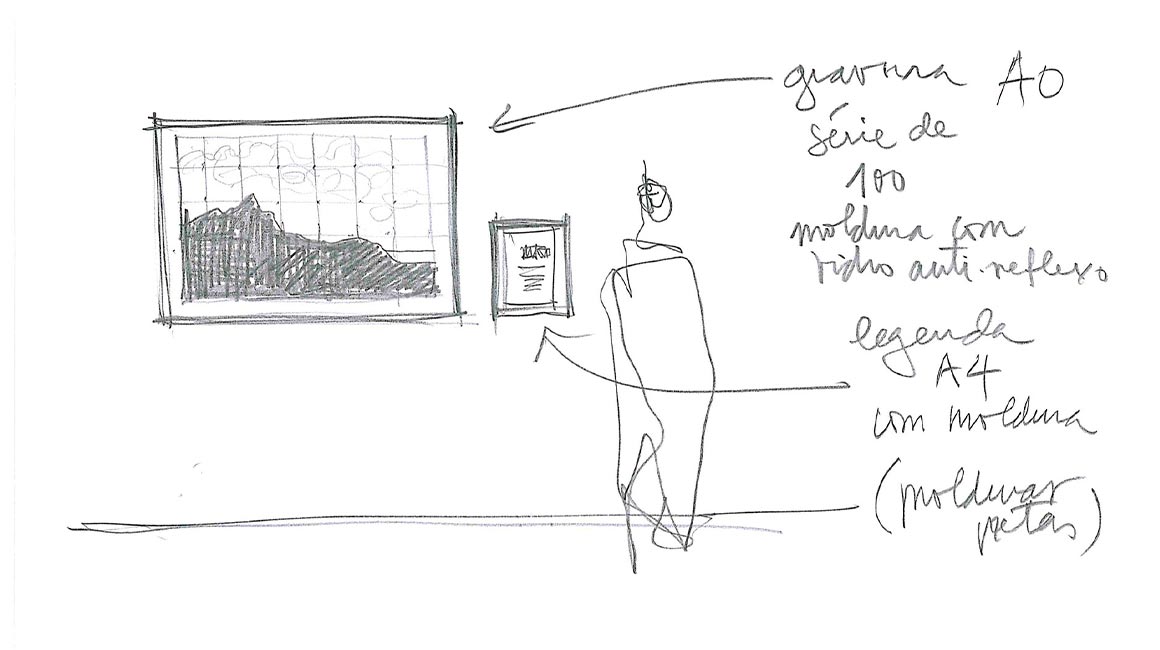 gravura A0
série de
100
moldura com
vidro anti-reflexo
legenda
A4
com moldura
(molduras
pretas)